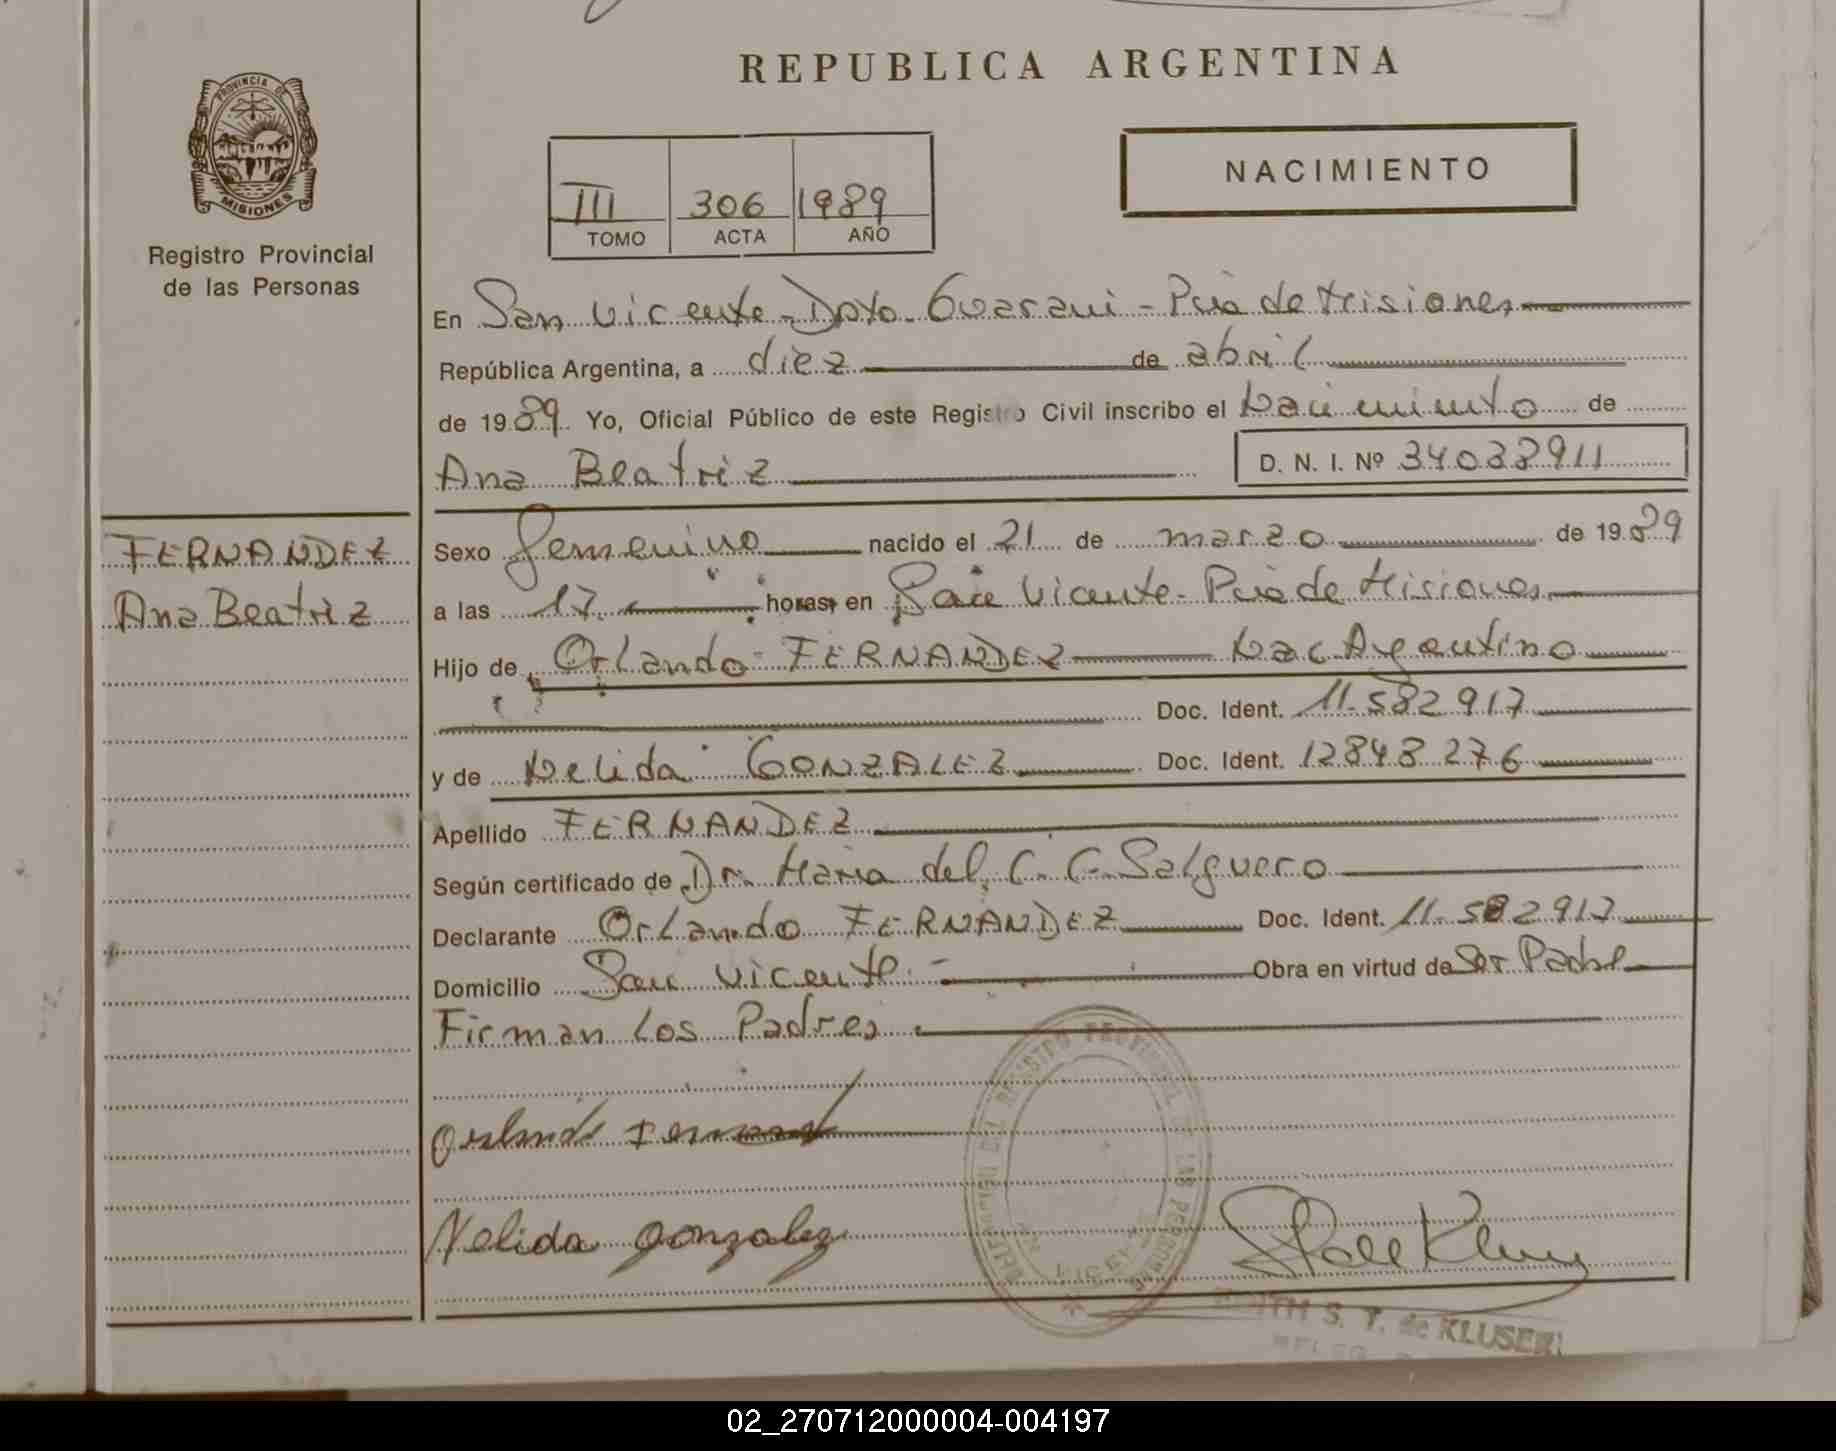 REPUBLICA ARGENTINA
PROVINCIA DE
MISIONES
Registro Provincial
de las Personas
NACIMIENTO
III 306 1989
TOMO ACTA AÑO
En San Vicente - Dpto. Guarani - Pcia de Misiones
República Argentina, a diez de abril
de 1989 Yo, Oficial Público de este Registro Civil inscribo el Nacimiento de
Ana Beatriz D. N. I. Nº 34038911
FERNANDEZ
Ana Beatriz
Sexo femenino nacido el 21 de marzo de 1989
a las 17 horas, en San Vicente - Pcia de Misiones
Hijo de Orlando FERNANDEZ Nac Argentino
Doc. Ident. 11.582917
y de Nelida GONZALEZ Doc. Ident. 12848276
Apellido FERNANDEZ
Según certificado de Dr. Maria del C. C. Salguero
Declarante Orlando FERNANDEZ Doc. Ident. 11.582917
Domicilio San Vicente.- Obra en virtud de Ser Padre
Firman Los Padres.
Nelida gonzalez
S. T. de KLUSER
02_270712000004-004197